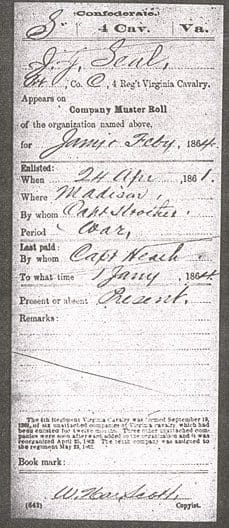 Confederate.
S 4 Cav. Va.
J. J. Seal,
Co. C, 4 Reg't Virginia Cavalry.
Appears on
Company Muster Roll
of the organization named above,
for Jan & Feby, 1864.
Enlisted:
When 24 Apr, 1861.
Where Madison,
By whom Capt Strother.
Period War,
Last paid:
By whom Capt
To what time 1 Jany, 1864
Present or absent Present.
Remarks:
The 4th Regiment Virginia Cavalry was formed September 19,
1861, of six unattached companies of Virginia cavalry, which had
been enlisted for twelve months. Three other unattached com-
panies were soon afterward added to the organization and it was
reorganized April 25, 1862. The tenth company was assigned to
the regiment May 23, 1862.
Book mark:
Scott
(642) Copyist.